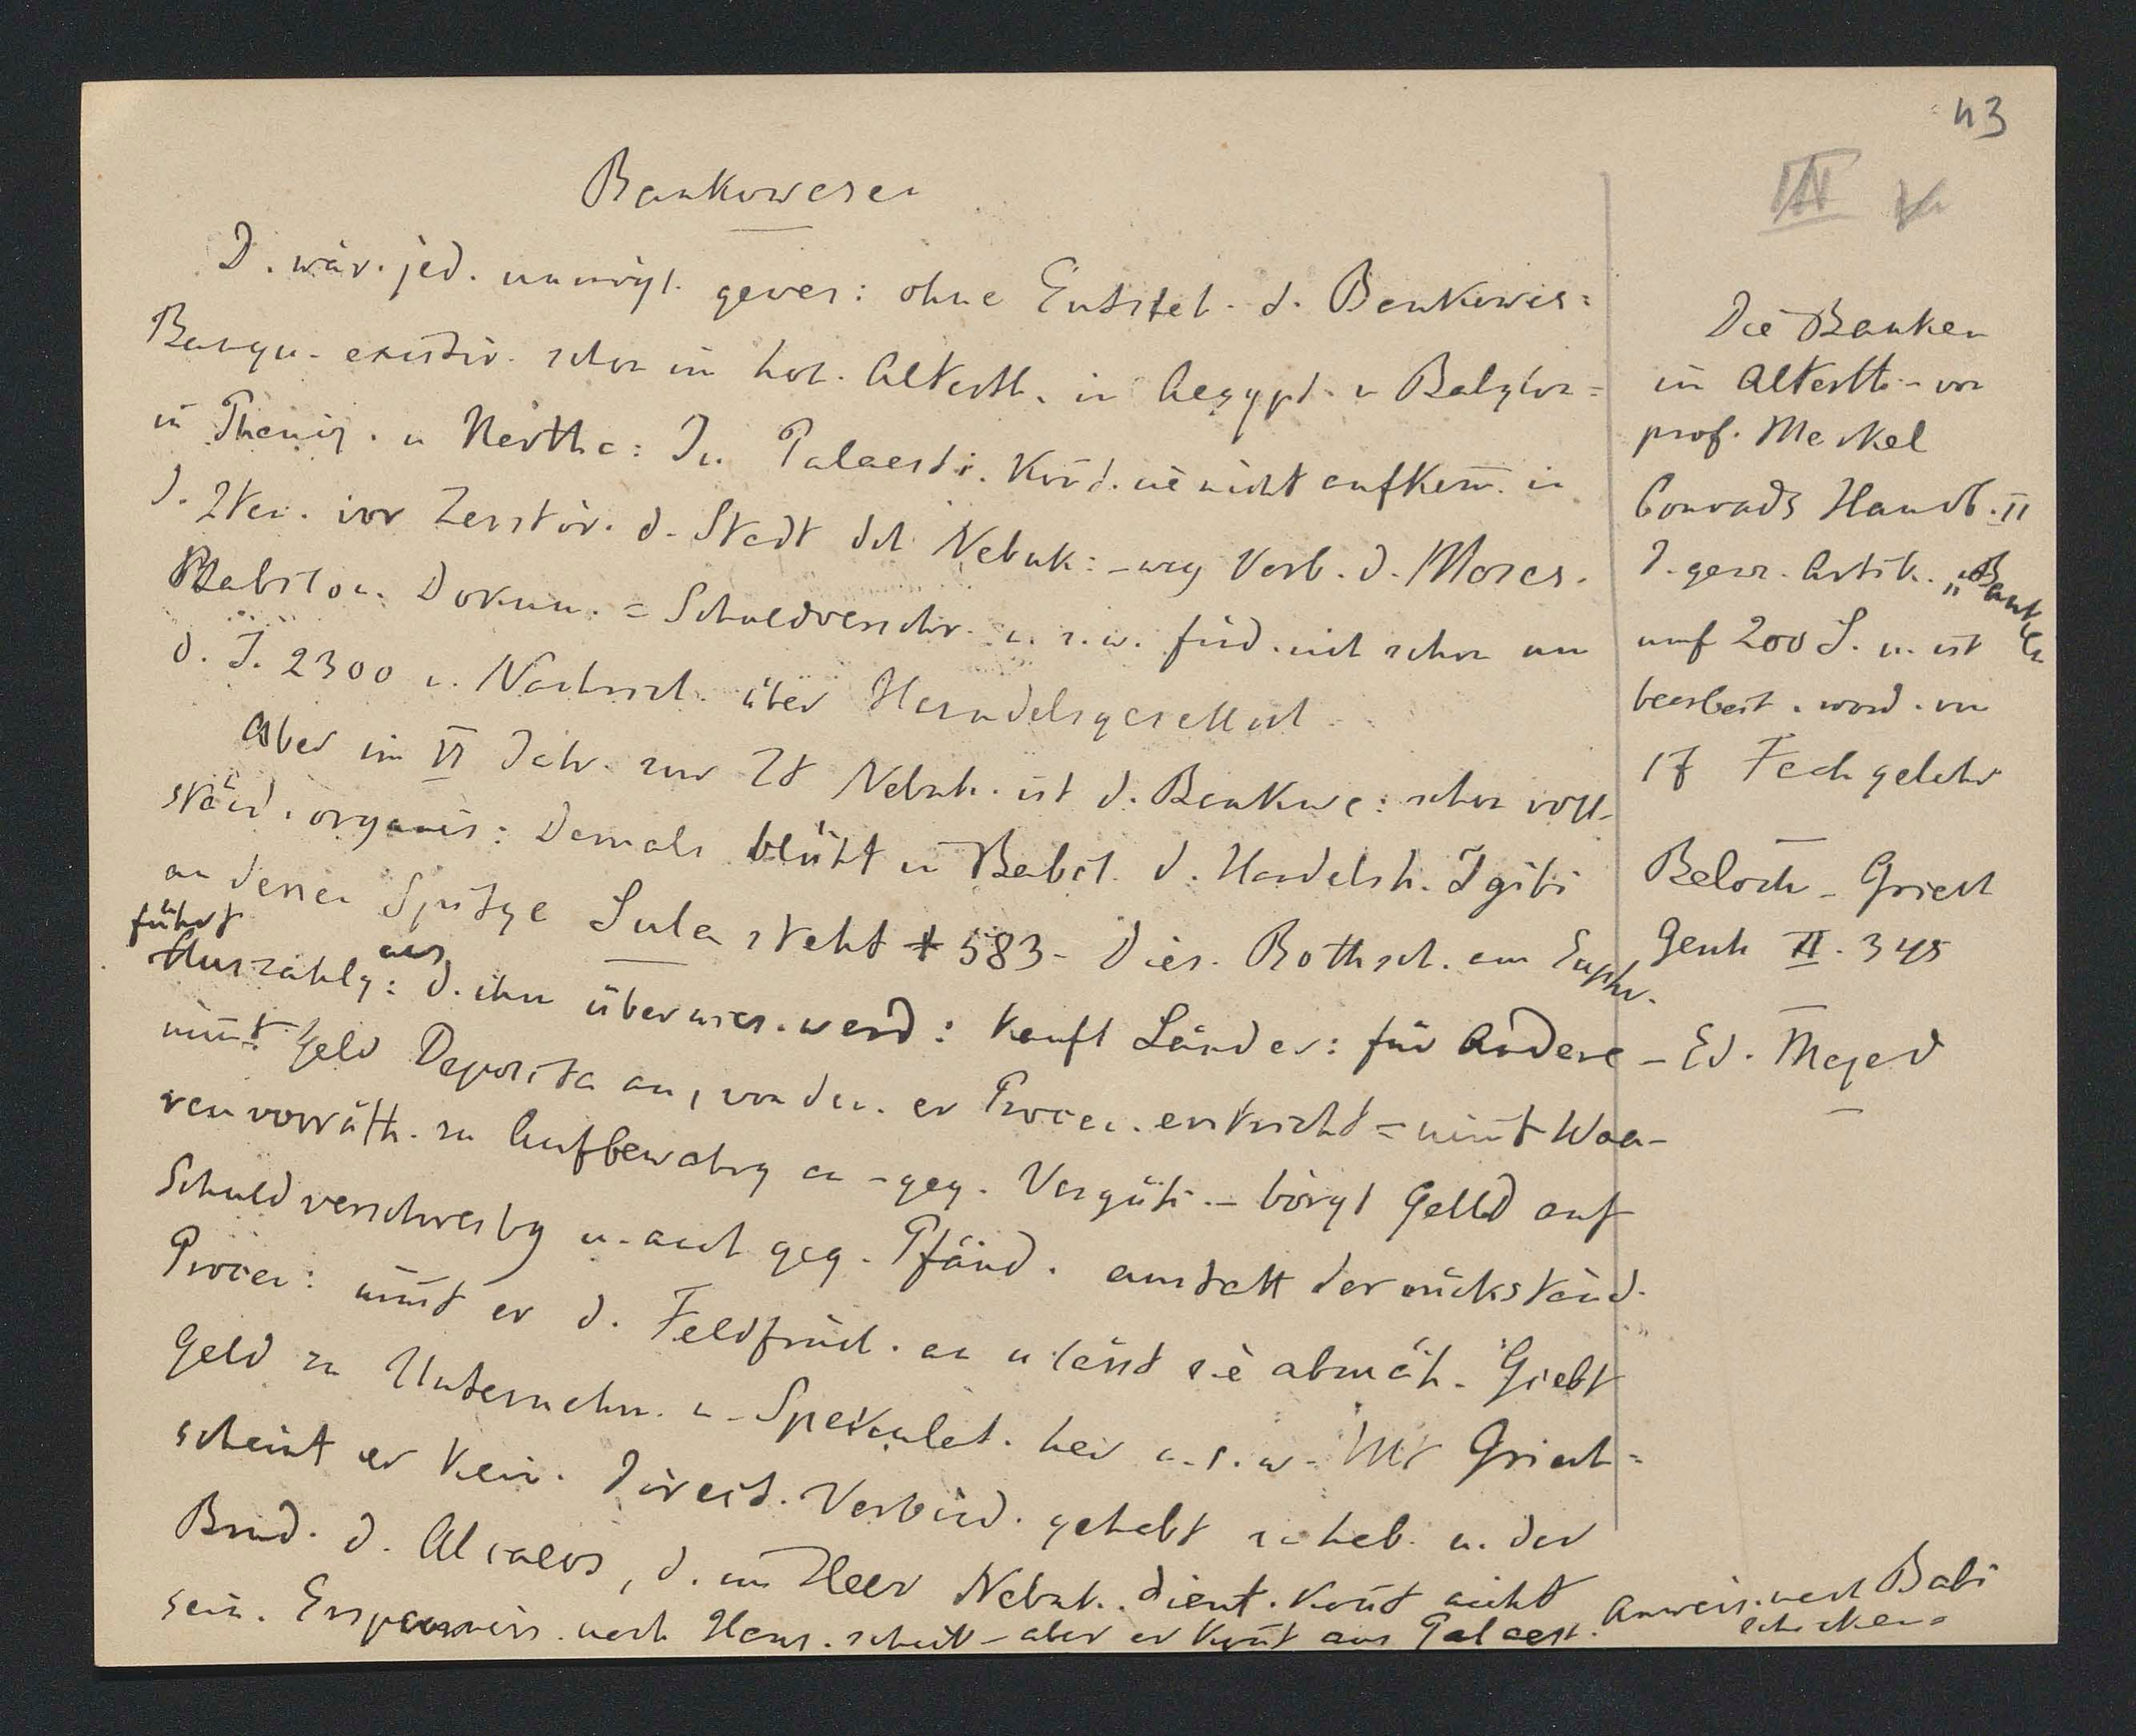 43
Bankowesen
D. wär. jed. unmögl. gewes: ohne Entsteh. d. Bankowes:
Banqu. existir. schon im hoh. Alterth. in Aegypt. u Babylon =
in Phoeniz. u Kartha: In Palaesti. Kond. sie nicht aufkom. in
d. Zten. vor Zerstör. d. Stadt dch Nebuk: - weg Verb. d. Moses.
Babilon. Dokum. = Schuldverschr. u. s. w. find. sich schon um
d. J. 2300 u. Nachricht. über Handelsgesellsch.
Aber im VI Jahr. zur Zt Nebuk. ist d. Bankwe: schon voll-
ständ. organis: Damals blüht in Babil. d. Handelsh. Igibi
an dessen Spitze Sula steht + 583 - Dies. Rothsch. am Euphr.
führt Auszahlg: aus d. ihm überwies. werd: kauft Länder: für Andere
nimt Geld Deposita an, von den. er Procen. entricht = nimt Waa-
renvorräth. zu Aufbewahrg an - geg. Vergüt. - borgt Geld auf
Schuldverschreibg u. auch geg. Pfänd. anstatt der rückständ.
Procen: nimt er d. Feldfrücht. an u lässt sie abmäh. Giebt
Geld zu Unternehm. u. Spekulat. her u. s. w. Mit Griech =
scheint er kein. direct. Verbind. gehabt zu hab. u. der
Brud. d. Alcaeos, d. im Heer Nebuk. dient. Kont nicht
sein. Ersparniss. nach Haus. schick - aber er Kont aus Palaest. Anweis. nach Babi
schicken =
Die Banken
im Alterth. - von
prof. Merkel
Conrads Handb. II
D. ganz. Artik. „Banken
umf 200 S. u. ist
bearbeit. word. von
17 Fachgelehr
Beloch - Griech
Gesch II. 345
- Ed. Meyer